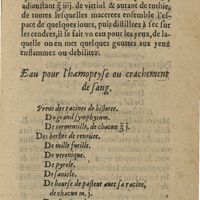 adioustant ℥ iiij. de vitriol & autant de tuthie,
de toutes lesquelles macerées ensemble l'es-
pace de quelques iours, puis distillées à feu sur
les cendres, il se fait vn eau pour les yeux, de la-
quelle on en met quelques gouttes aux yeux
enflammez ou debilitez.
Eau pour l'hæmoptyse ou crachement
de sang.
Prens des racines de bistorte.
Du grand symphytum.
De tormentille, de chacun ℥ j.
Des herbes de renouée.
De mille fueille.
De veronique.
De pyrole.
De sanicle.
De bourse de pasteur auec sa racine,
de chacun m. j.